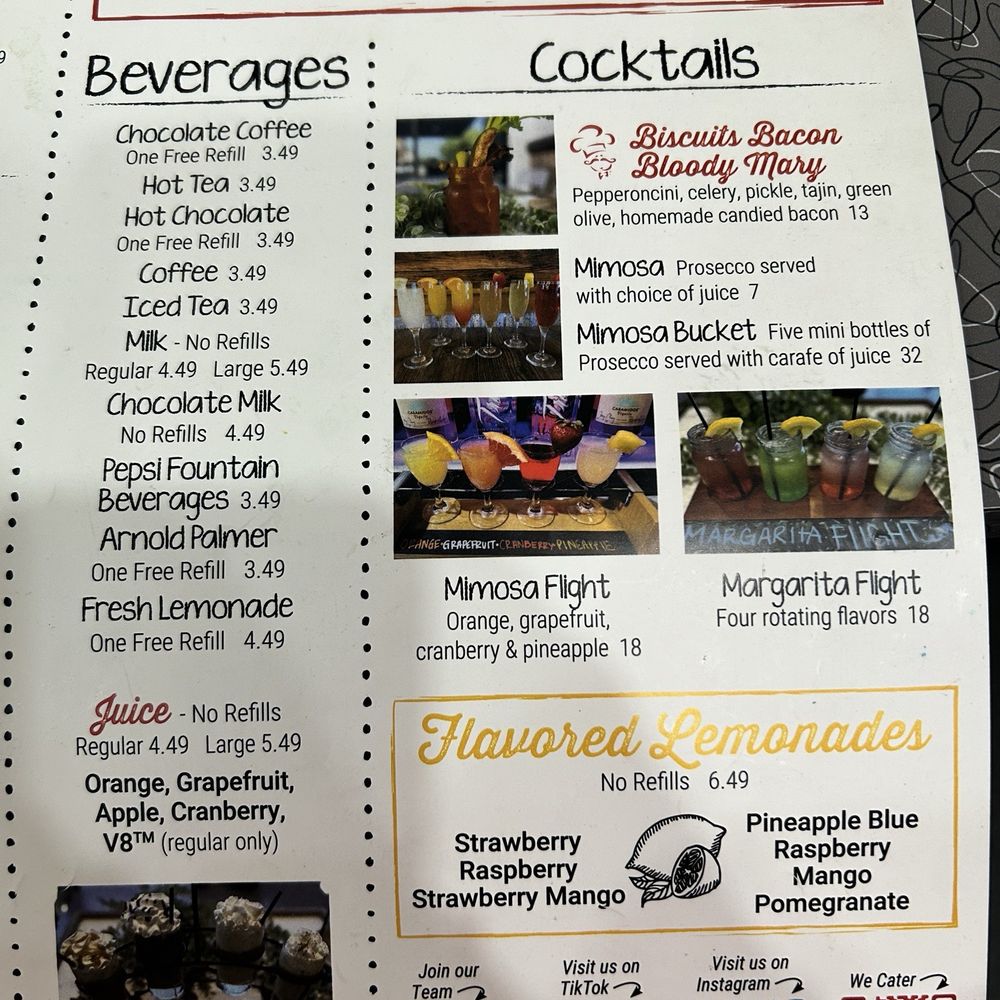 Beverages
Chocolate Coffee
One Free Refill 3.49
Hot Tea 3.49
Hot Chocolate
One Free Refill 3.49
Coffee 3.49
Iced Tea 3.49
Milk - No Refills
Regular 4.49 Large 5.49
Chocolate Milk
No Refills 4.49
Pepsi Fountain
Beverages 3.49
Arnold Palmer
One Free Refill 3.49
Fresh Lemonade
One Free Refill 4.49
Juice - No Refills
Regular 4.49 Large 5.49
Orange, Grapefruit,
Apple, Cranberry,
V8™ (regular only)
Cocktails
Biscuits Bacon
Bloody Mary
Pepperoncini, celery, pickle, tajin, green
olive, homemade candied bacon 13
Mimosa Prosecco served
with choice of juice 7
Mimosa Bucket Five mini bottles of
Prosecco served with carafe of juice 32
GRAPEFRUIT • CRANBERRY • PINEAPPLE
Mimosa Flight
Orange, grapefruit,
cranberry & pineapple 18
MARGARITA FLIGHTS
Margarita Flight
Four rotating flavors 18
Flavored Lemonades
No Refills 6.49
Strawberry
Raspberry
Strawberry Mango
Pineapple Blue
Raspberry
Mango
Pomegranate
Join our
Team
Visit us on
TikTok
Visit us on
Instagram
We Cater